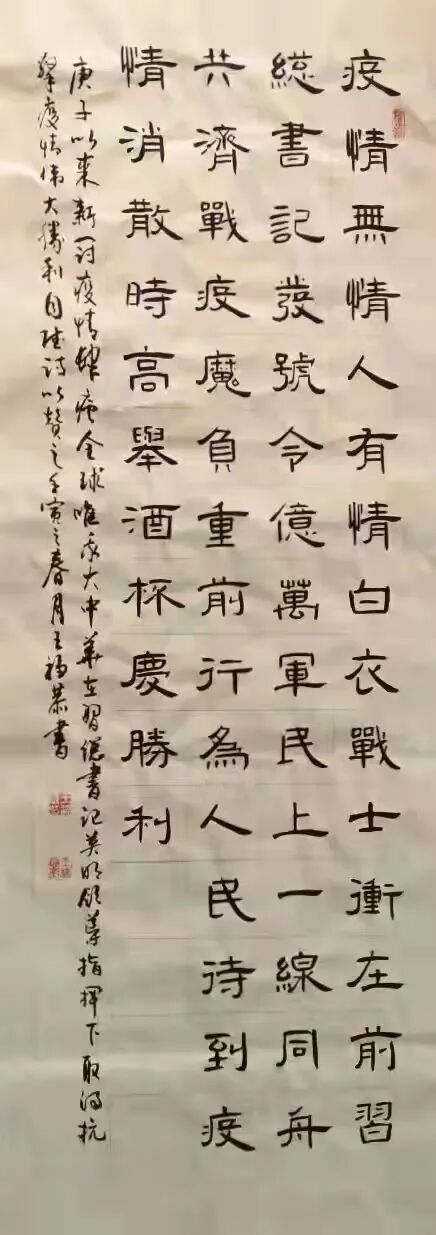 疫情無情人有情白衣戰士衝在前習
總書記發號令億萬軍民上一線同舟
共濟戰疫魔負重前行為人民待到疫
情消散時高舉酒杯慶勝利
庚子以來新冠疫情肆虐全球唯我大中華在習總書記英明領導指揮下取得抗
擊疫情偉大勝利自賦詩以贊之壬寅之春月王福恭書